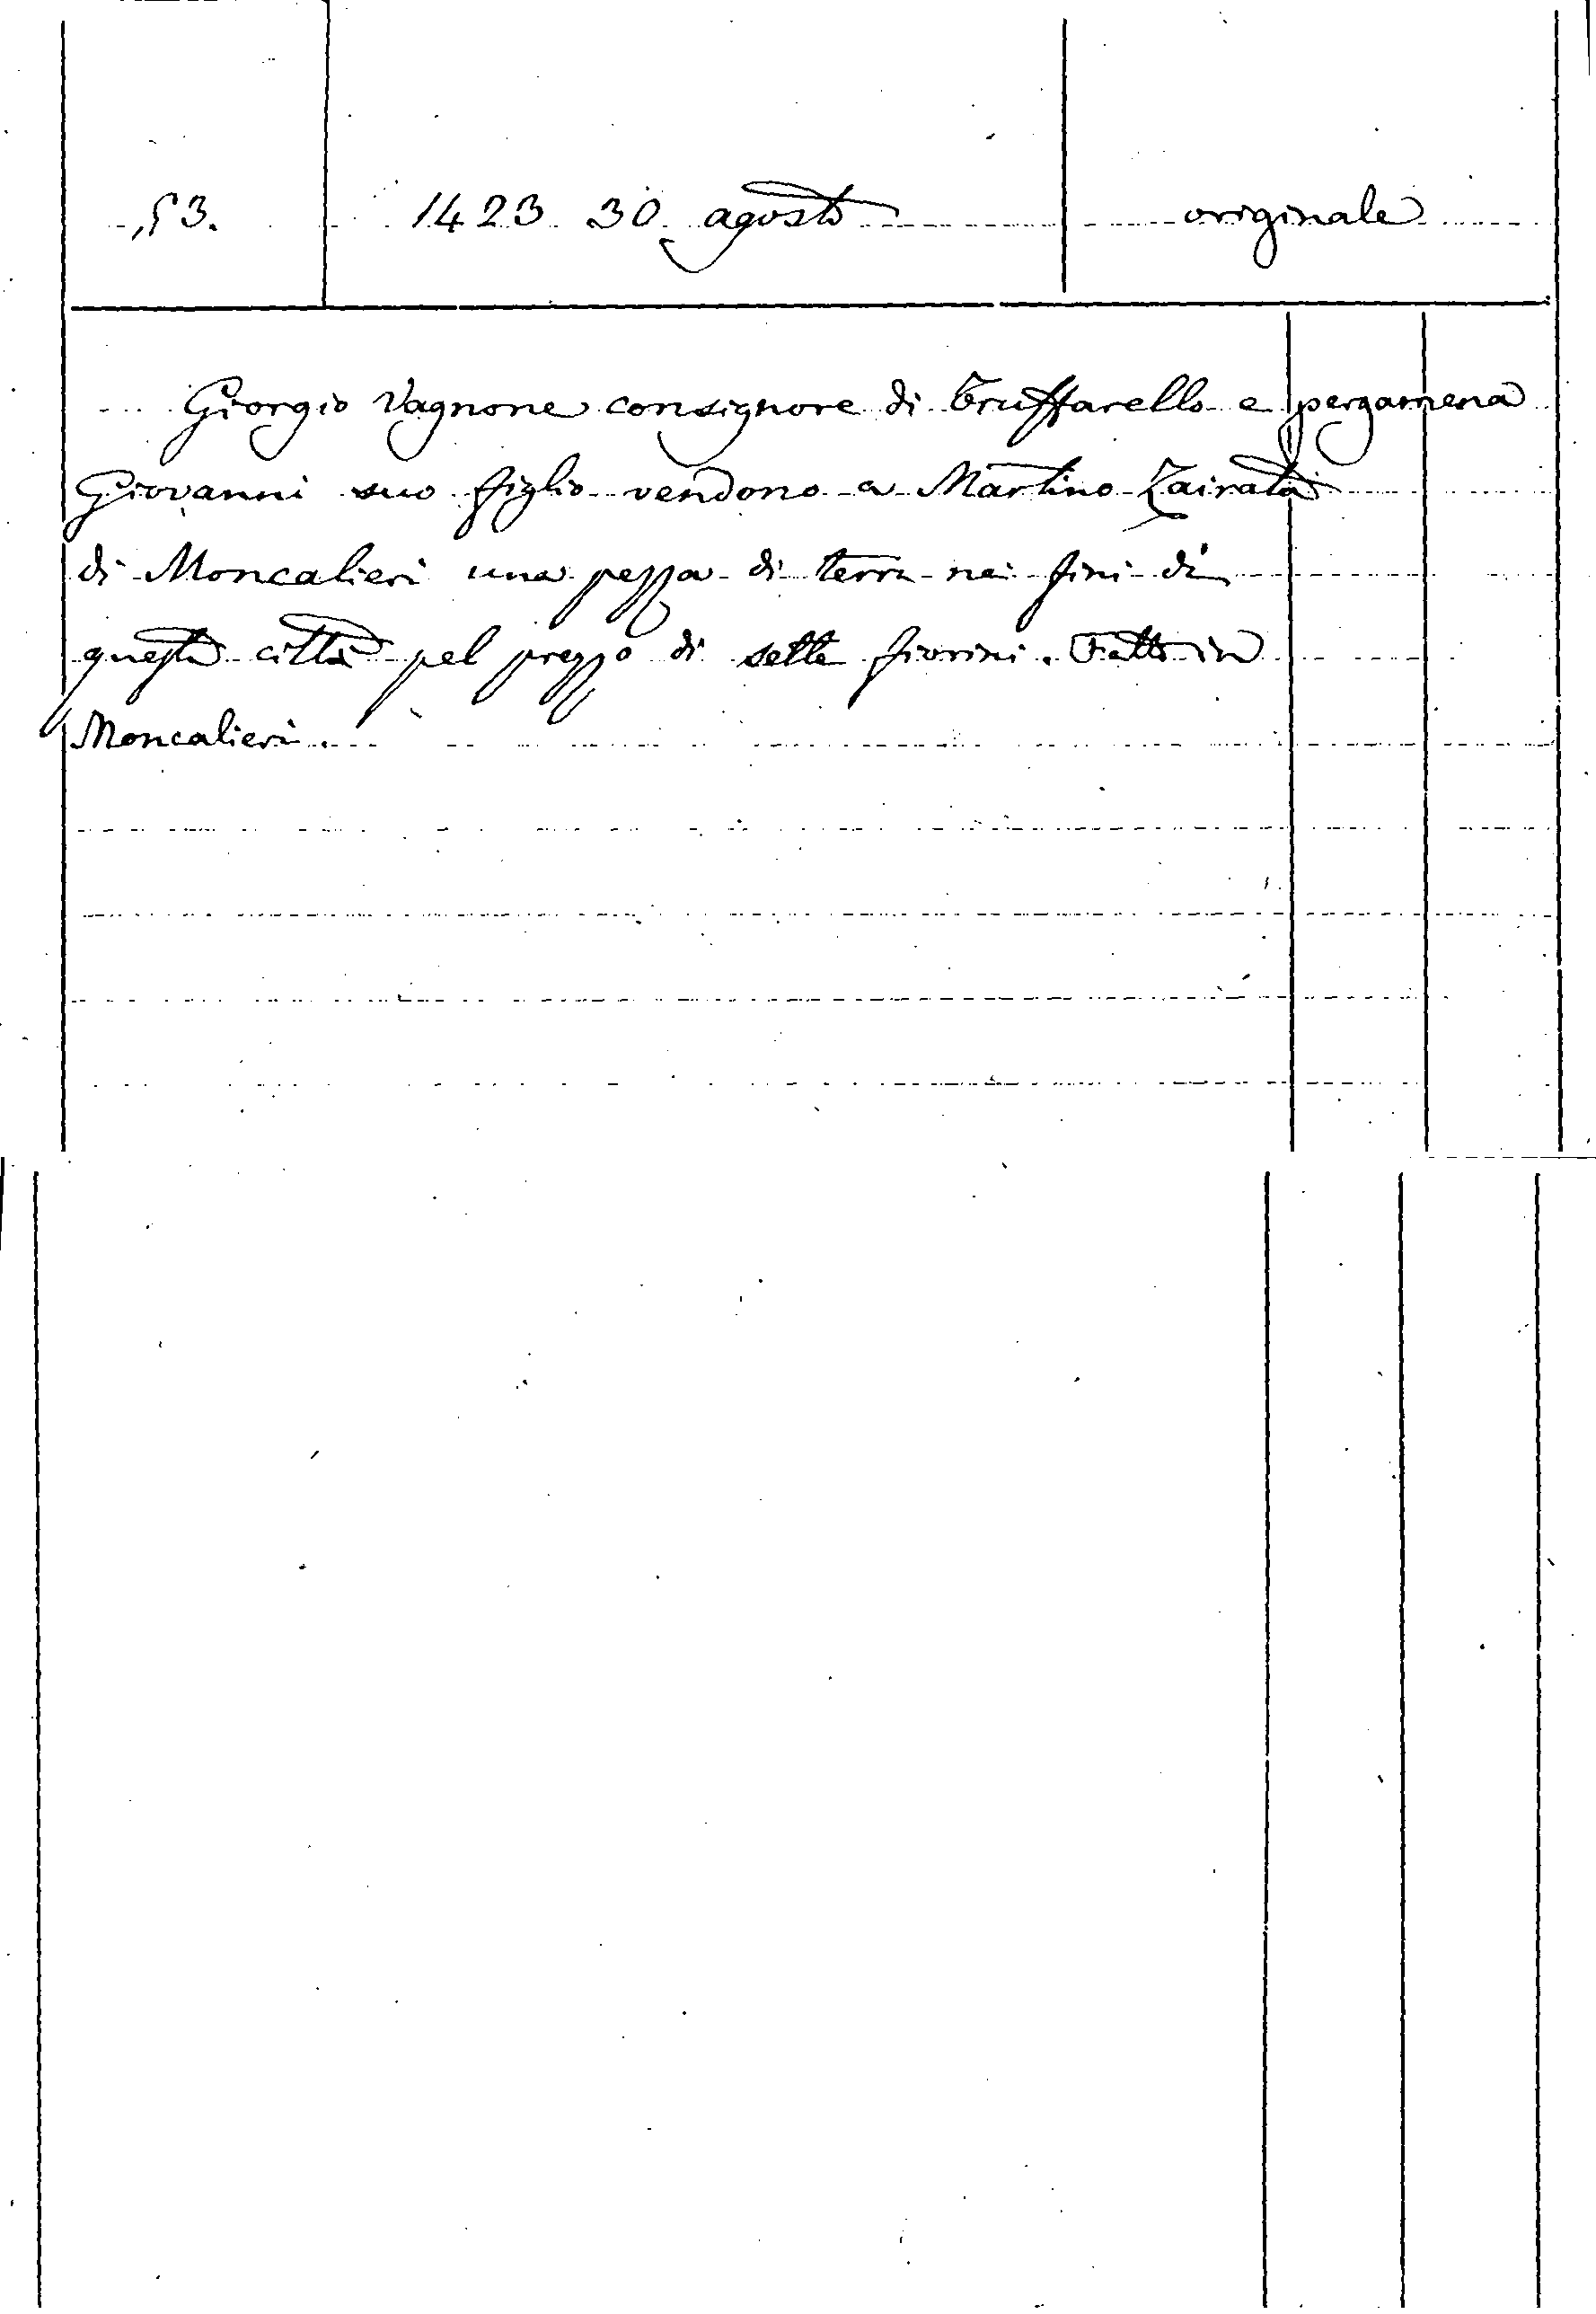 53. 1423 30 agosto originale
Giorgio Vagnone consignore di Truffarello e pergamena
Giovanni suo figlio vendono a Martino Zairata
di Moncalieri una pezza di terra nei fini di
questa città pel prezzo di sette fiorini. Fatto in
Moncalieri.